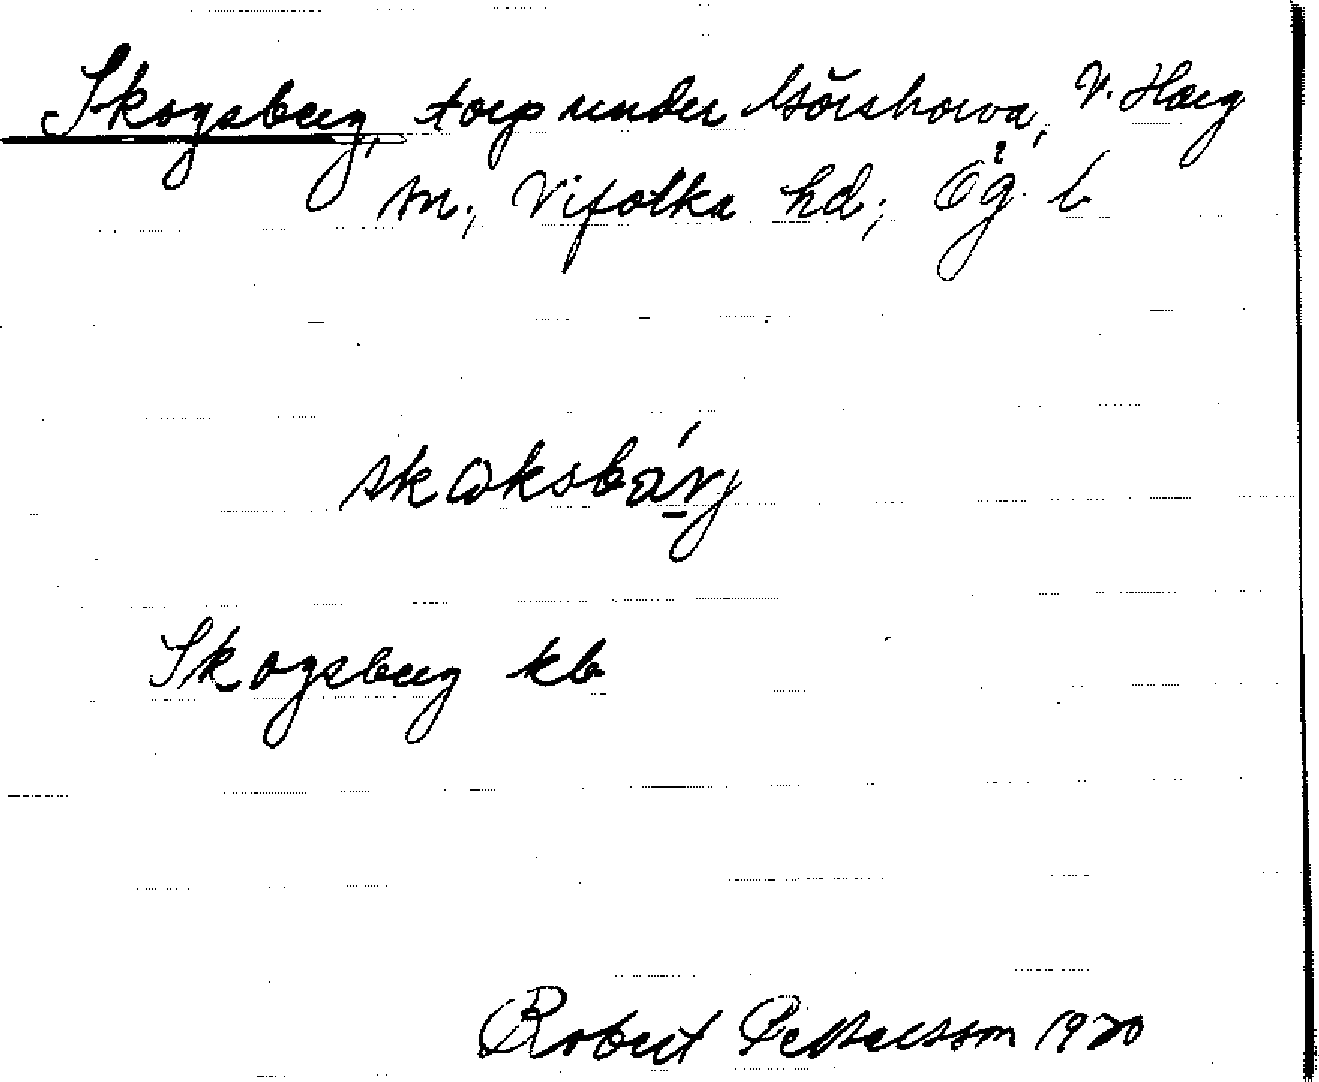 Skogsberg, torp under Störshorva, V. Harg
sn.; Vifolka hd; Ög. l
skɷksbárj
Skogsberg kb
Robert Pettersson 1920